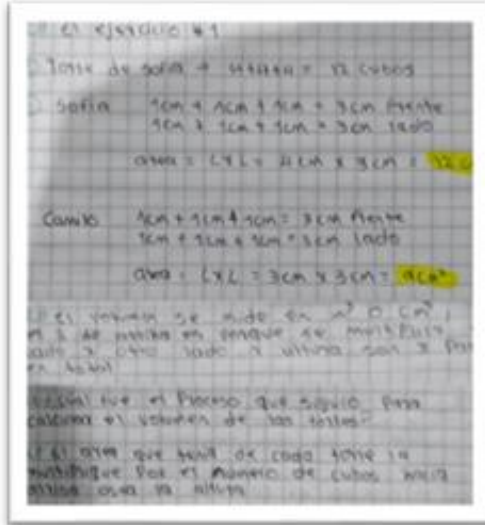 el ejercicio #1
Torre de sofia = 4+4+4 = 12 cubos
Sofia 1cm + 1cm + 1cm = 3cm frente
1cm + 1cm + 1cm = 3cm lado
area = LxL = 4cm x 3cm = 12 c
Camilo 1cm + 1cm + 1cm = 3cm frente
1cm + 1cm + 1cm = 3cm lado
area = LxL = 3cm x 3cm = 9cm²
el volumen se mide en m³ o cm³,
el 3 de arriba es porque se multiplica
lado x otro lado x altura son 3
en total
cual fue el Proceso que siguio Para
calcular el volumen de las torres
el area que tenia de cada torre la
multiplique Por el numero de cubos hacia
arriba osea la altura